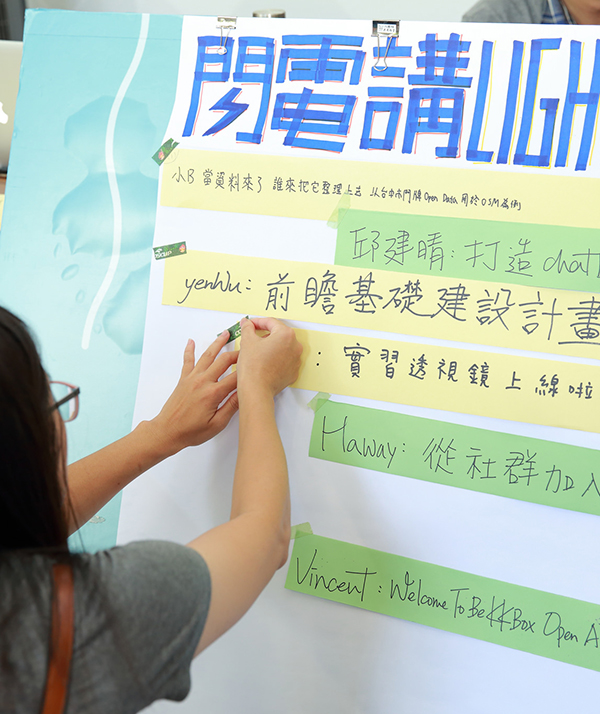 閃電講LIGH
小B 當資料來了 誰來把它整理上去 以台中市門牌 Open Data 用於OSM為例
邱建晴:打造chat
yenWu: 前瞻基礎建設計畫
: 實習透視鏡上線啦
Haway: 從社群加入
Vincent: Welcome To Be KKBox Open A